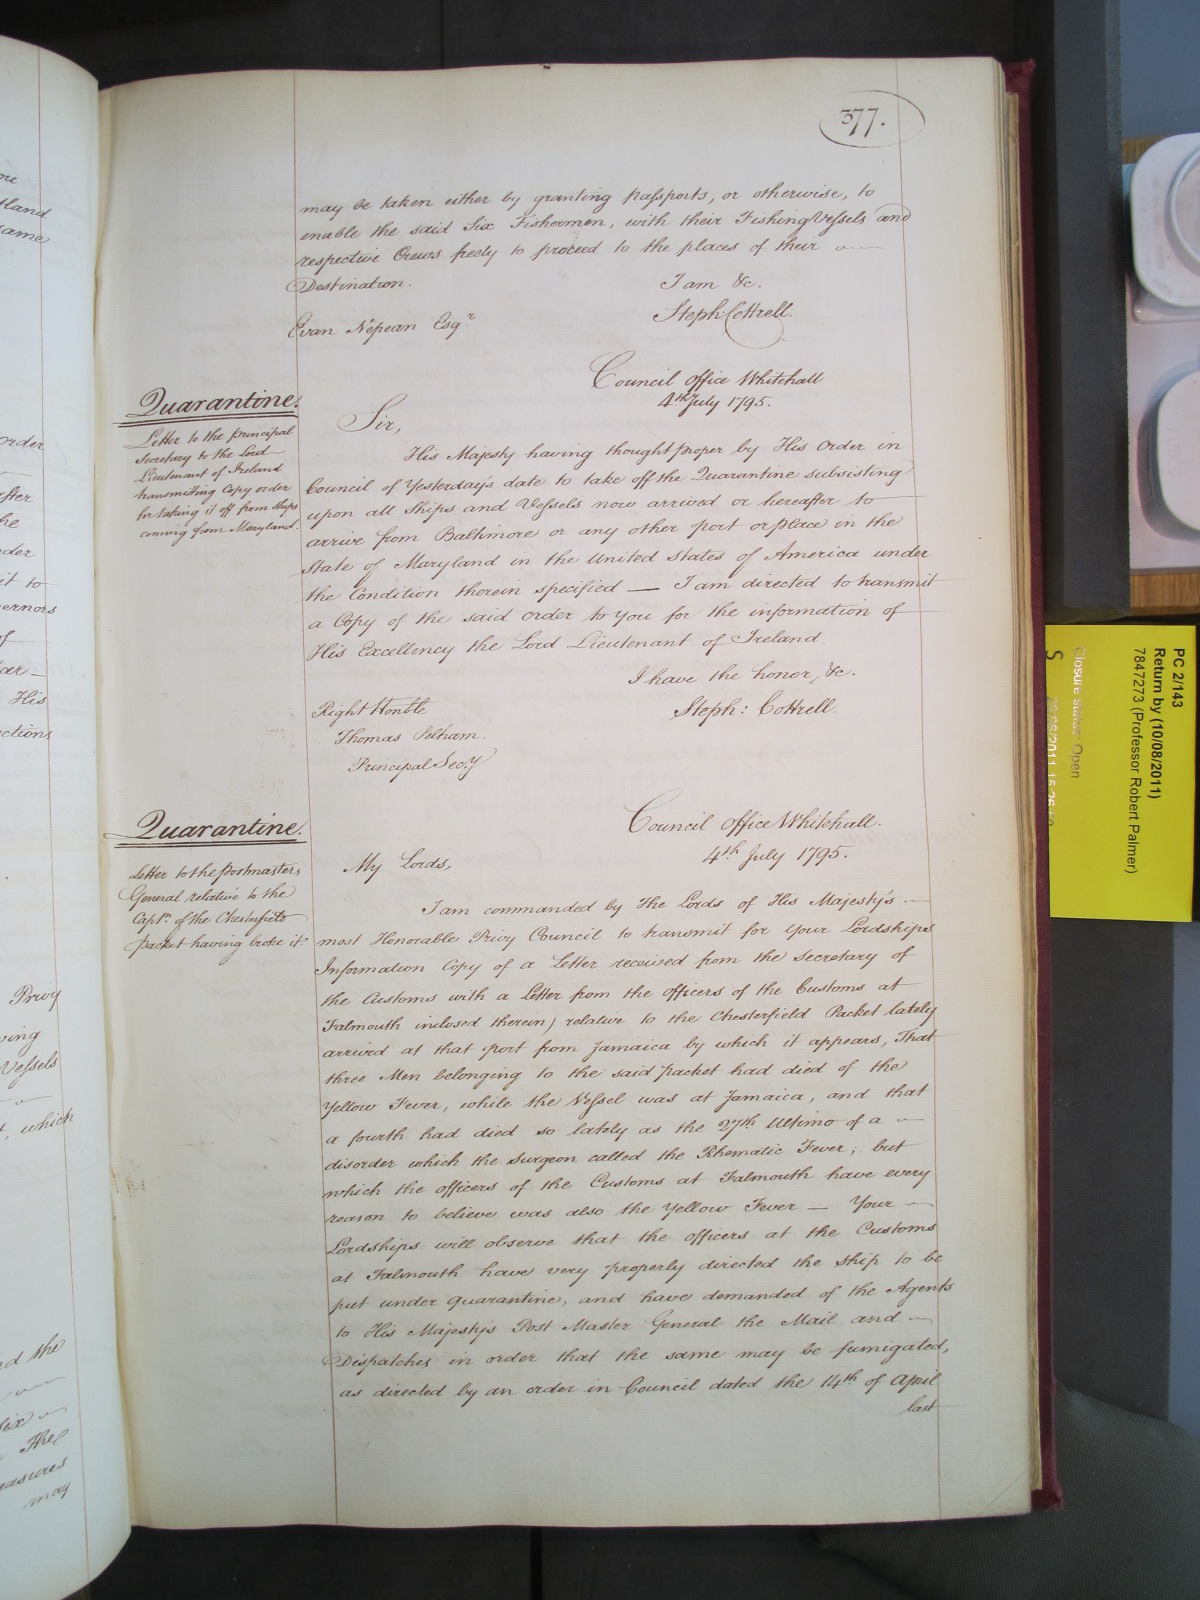 377.
may be taken either by granting passports, or otherwise, to
enable the said Six Fishermen, with their Fishing Vessels and
respective Crews freely to proceed to the places of their
Destination.
I am &c.
Steph: Cottrell.
Evan Nepean Esqr.
Council office Whitehall
4th July 1795.
Quarantine.
Letter to the principal
Secretary to the Lord
Lieutenant of Ireland
transmitting Copy order
for taking it off from Ships
coming from Maryland.
Sir,
His Majesty having thought proper by His Order in
Council of Yesterday's date to take off the Quarantine subsisting
upon all Ships and Vessels now arrived or hereafter to
arrive from Baltimore or any other port or place in the
State of Maryland in the United States of America under
the Condition therein specified — I am directed to transmit
a Copy of the said order to You for the information of
His Excellency the Lord Lieutenant of Ireland.
I have the honor, &c.
Steph: Cottrell.
Right Honble
Thomas Pelham.
Principal Secy
Council office Whitehall.
4th July 1795.
Quarantine.
Letter to the Postmasters
General relative to the
Captn. of the Chesterfield
packet having broke it.
My Lords,
I am commanded by The Lords of His Majesty's
most Honorable Privy Council to transmit for Your Lordships
Information Copy of a Letter received from the Secretary of
the Customs with a Letter from the officers of the Customs at
Falmouth inclosed therein) relative to the Chesterfield Packet lately
arrived at that port from Jamaica by which it appears, That
three Men belonging to the said packet had died of the
Yellow Fever, while the Vessel was at Jamaica, and that
a fourth had died so lately as the 27th Ultimo of a
disorder which the Surgeon called the Rhematic Fever; but
which the officers of the Customs at Falmouth have every
reason to believe was also the Yellow Fever — Your
Lordships will observe that the officers at the Customs
at Falmouth have very properly directed the ship to be
put under quarantine, and have demanded of the Agents
to His Majesty's Post Master General the Mail and
Dispatches in order that the same may be fumigated,
as directed by an order in Council dated the 14th of April
last
order
which
Privy
Vessels
His
it to
may
PC 2/143
Return by (10/08/2011)
7847273 (Professor Robert Palmer)
Closure Status: Open
S